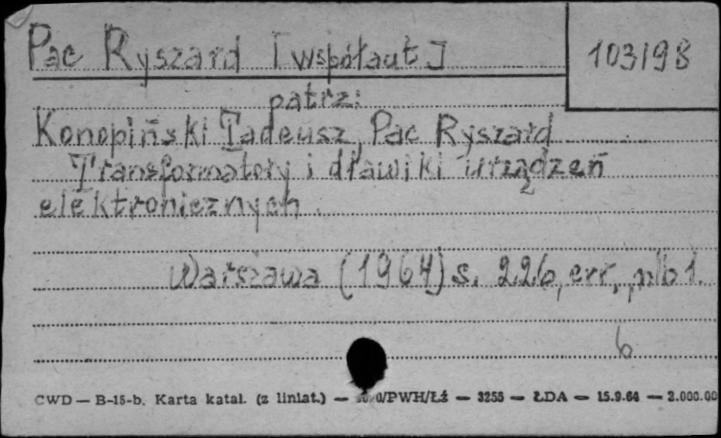 Pac Ryszard [współaut]
103198
patrz:
Konopiński Tadeusz, Pac Ryszard
Transformatory i dławiki urządzeń
elektronicznych.
Warszawa (1964) s. 226, err., nlb 1.
b
CWD — B-15-b. Karta katal. (z liniat.) — /PWH/Łź — 3255 — ŁDA — 15.9.64 — 2.000.00